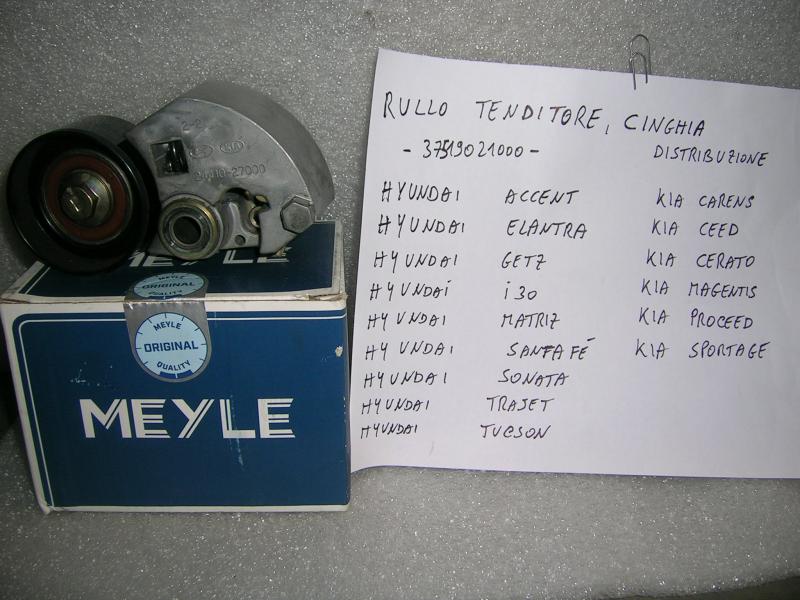 2-2
24410-27000
MEYLE
MEYLE
ORIGINAL
MEYLE
ORIGINAL
QUALITY
MEYLE
RULLO TENDITORE, CINGHIA
- 37519021000 - DISTRIBUZIONE
HYUNDAI ACCENT KIA CARENS
HYUNDAI ELANTRA KIA CEED
HYUNDAI GETZ KIA CERATO
HYUNDAI i30 KIA MAGENTIS
HYUNDAI MATRIZ KIA PROCEED
HYUNDAI SANTA FÉ KIA SPORTAGE
HYUNDAI SONATA
HYUNDAI TRAJET
HYUNDAI TUCSON